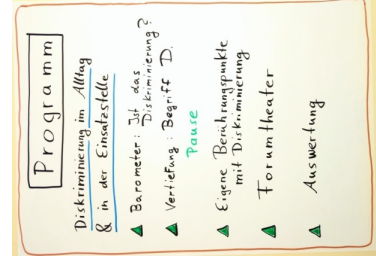 Programm
Diskriminierung im Alltag
& in der Einsatzstelle
Barometer: Ist das
Diskriminierung?
Vertiefung: Begriff D.
Pause
Eigene Berührungspunkte
mit Diskriminierung
Forumtheater
Auswertung